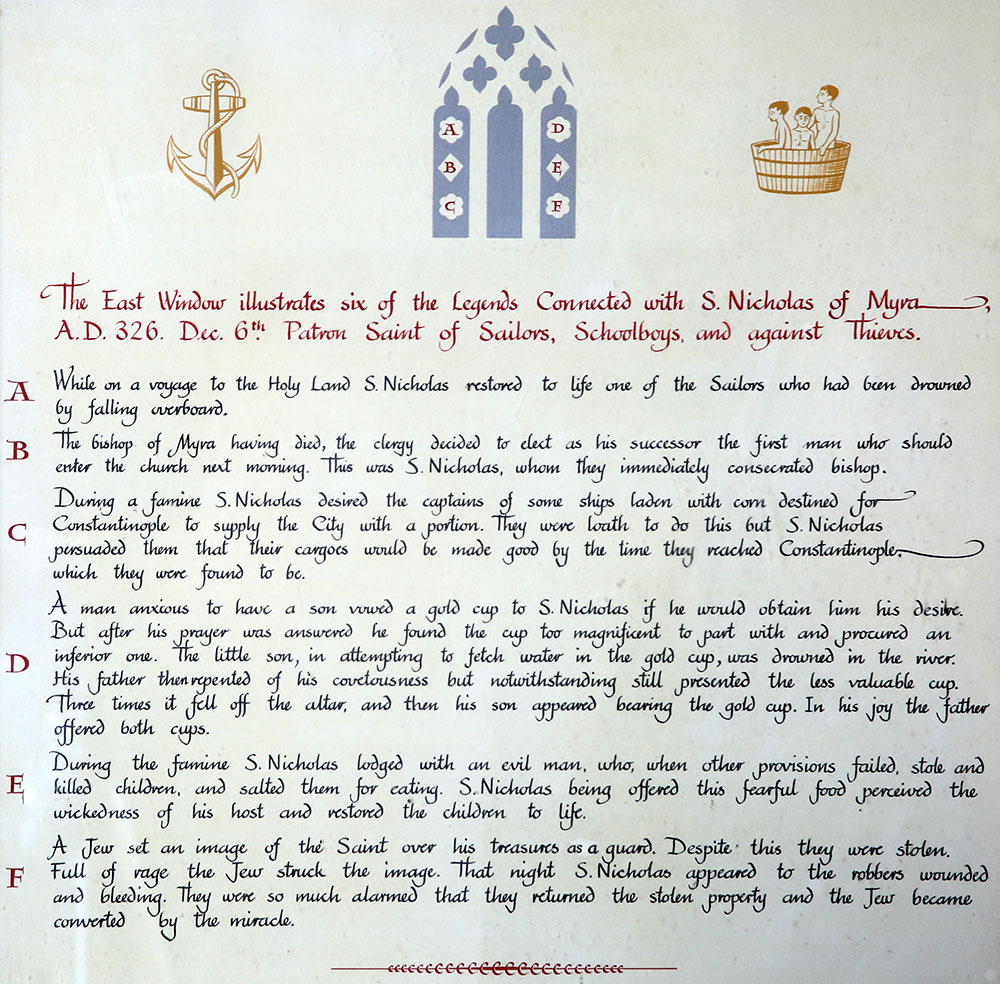 A
D
B
E
C
F
The East Window illustrates six of the Legends Connected with S. Nicholas of Myra,
A.D. 326. Dec. 6th. Patron Saint of Sailors, Schoolboys, and against Thieves.
A While on a voyage to the Holy Land S. Nicholas restored to life one of the Sailors who had been drowned
by falling overboard.
B The bishop of Myra having died, the clergy decided to elect as his successor the first man who should
enter the church next morning. This was S. Nicholas, whom they immediately consecrated bishop.
During a famine S. Nicholas desired the captains of some ships laden with corn destined for
C Constantinople to supply the City with a portion. They were loath to do this but S. Nicholas
persuaded them that their cargoes would be made good by the time they reached Constantinople,
which they were found to be.
A man anxious to have a son vowed a gold cup to S. Nicholas if he would obtain him his desire.
But after his prayer was answered he found the cup too magnificent to part with and procured an
D inferior one. The little son, in attempting to fetch water in the gold cup, was drowned in the river.
His father then repented of his covetousness but notwithstanding still presented the less valuable cup.
Three times it fell off the altar, and then his son appeared bearing the gold cup. In his joy the father
offered both cups.
During the famine S. Nicholas lodged with an evil man, who, when other provisions failed, stole and
E killed children, and salted them for eating. S. Nicholas being offered this fearful food perceived the
wickedness of his host and restored the children to life.
A Jew set an image of the Saint over his treasures as a guard. Despite this they were stolen.
F Full of rage the Jew struck the image. That night S. Nicholas appeared to the robbers wounded
and bleeding. They were so much alarmed that they returned the stolen property and the Jew became
converted by the miracle.